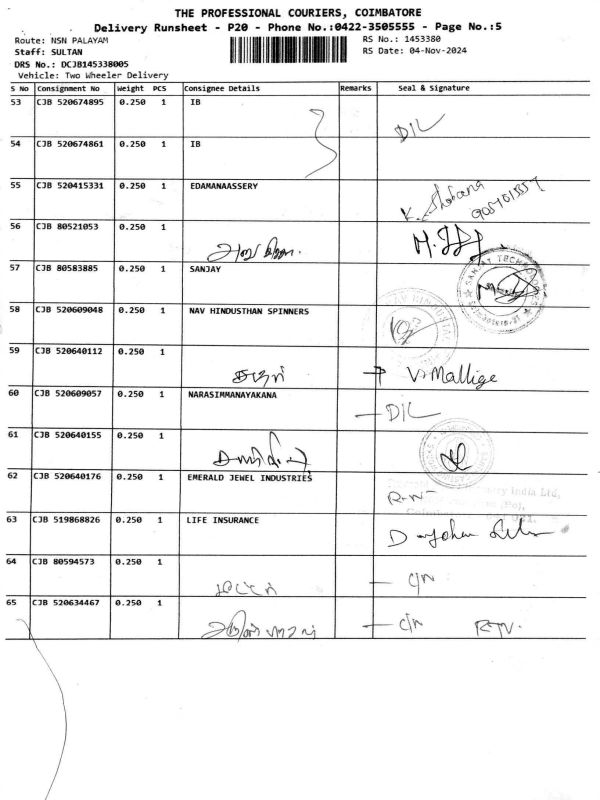 THE PROFESSIONAL COURIERS, COIMBATORE
Delivery Runsheet - P20 - Phone No.:0422-3505555 - Page No.:5
Route: NSN PALAYAM
RS No.: 1453380
Staff: SULTAN
RS Date: 04-Nov-2024
DRS No.: DCJB145338005
Vehicle: Two Wheeler Delivery
S No Consignment No Weight PCS Consignee Details Remarks Seal & Signature
53 CJB 520674895 0.250 1 IB
D/L
54 CJB 520674861 0.250 1 IB
55 CJB 520415331 0.250 1 EDAMANAASSERY
K. Shobana
56 CJB 80521053 0.250 1
57 CJB 80583885 0.250 1 SANJAY
58 CJB 520609048 0.250 1 NAV HINDUSTHAN SPINNERS
59 CJB 520640112 0.250 1
V. Mallige
60 CJB 520609057 0.250 1 NARASIMMANAYAKANA
D/L
61 CJB 520640155 0.250 1
62 CJB 520640176 0.250 1 EMERALD JEWEL INDUSTRIES
India Ltd,
63 CJB 519868826 0.250 1 LIFE INSURANCE
64 CJB 80594573 0.250 1
C/N
65 CJB 520634467 0.250 1
C/N